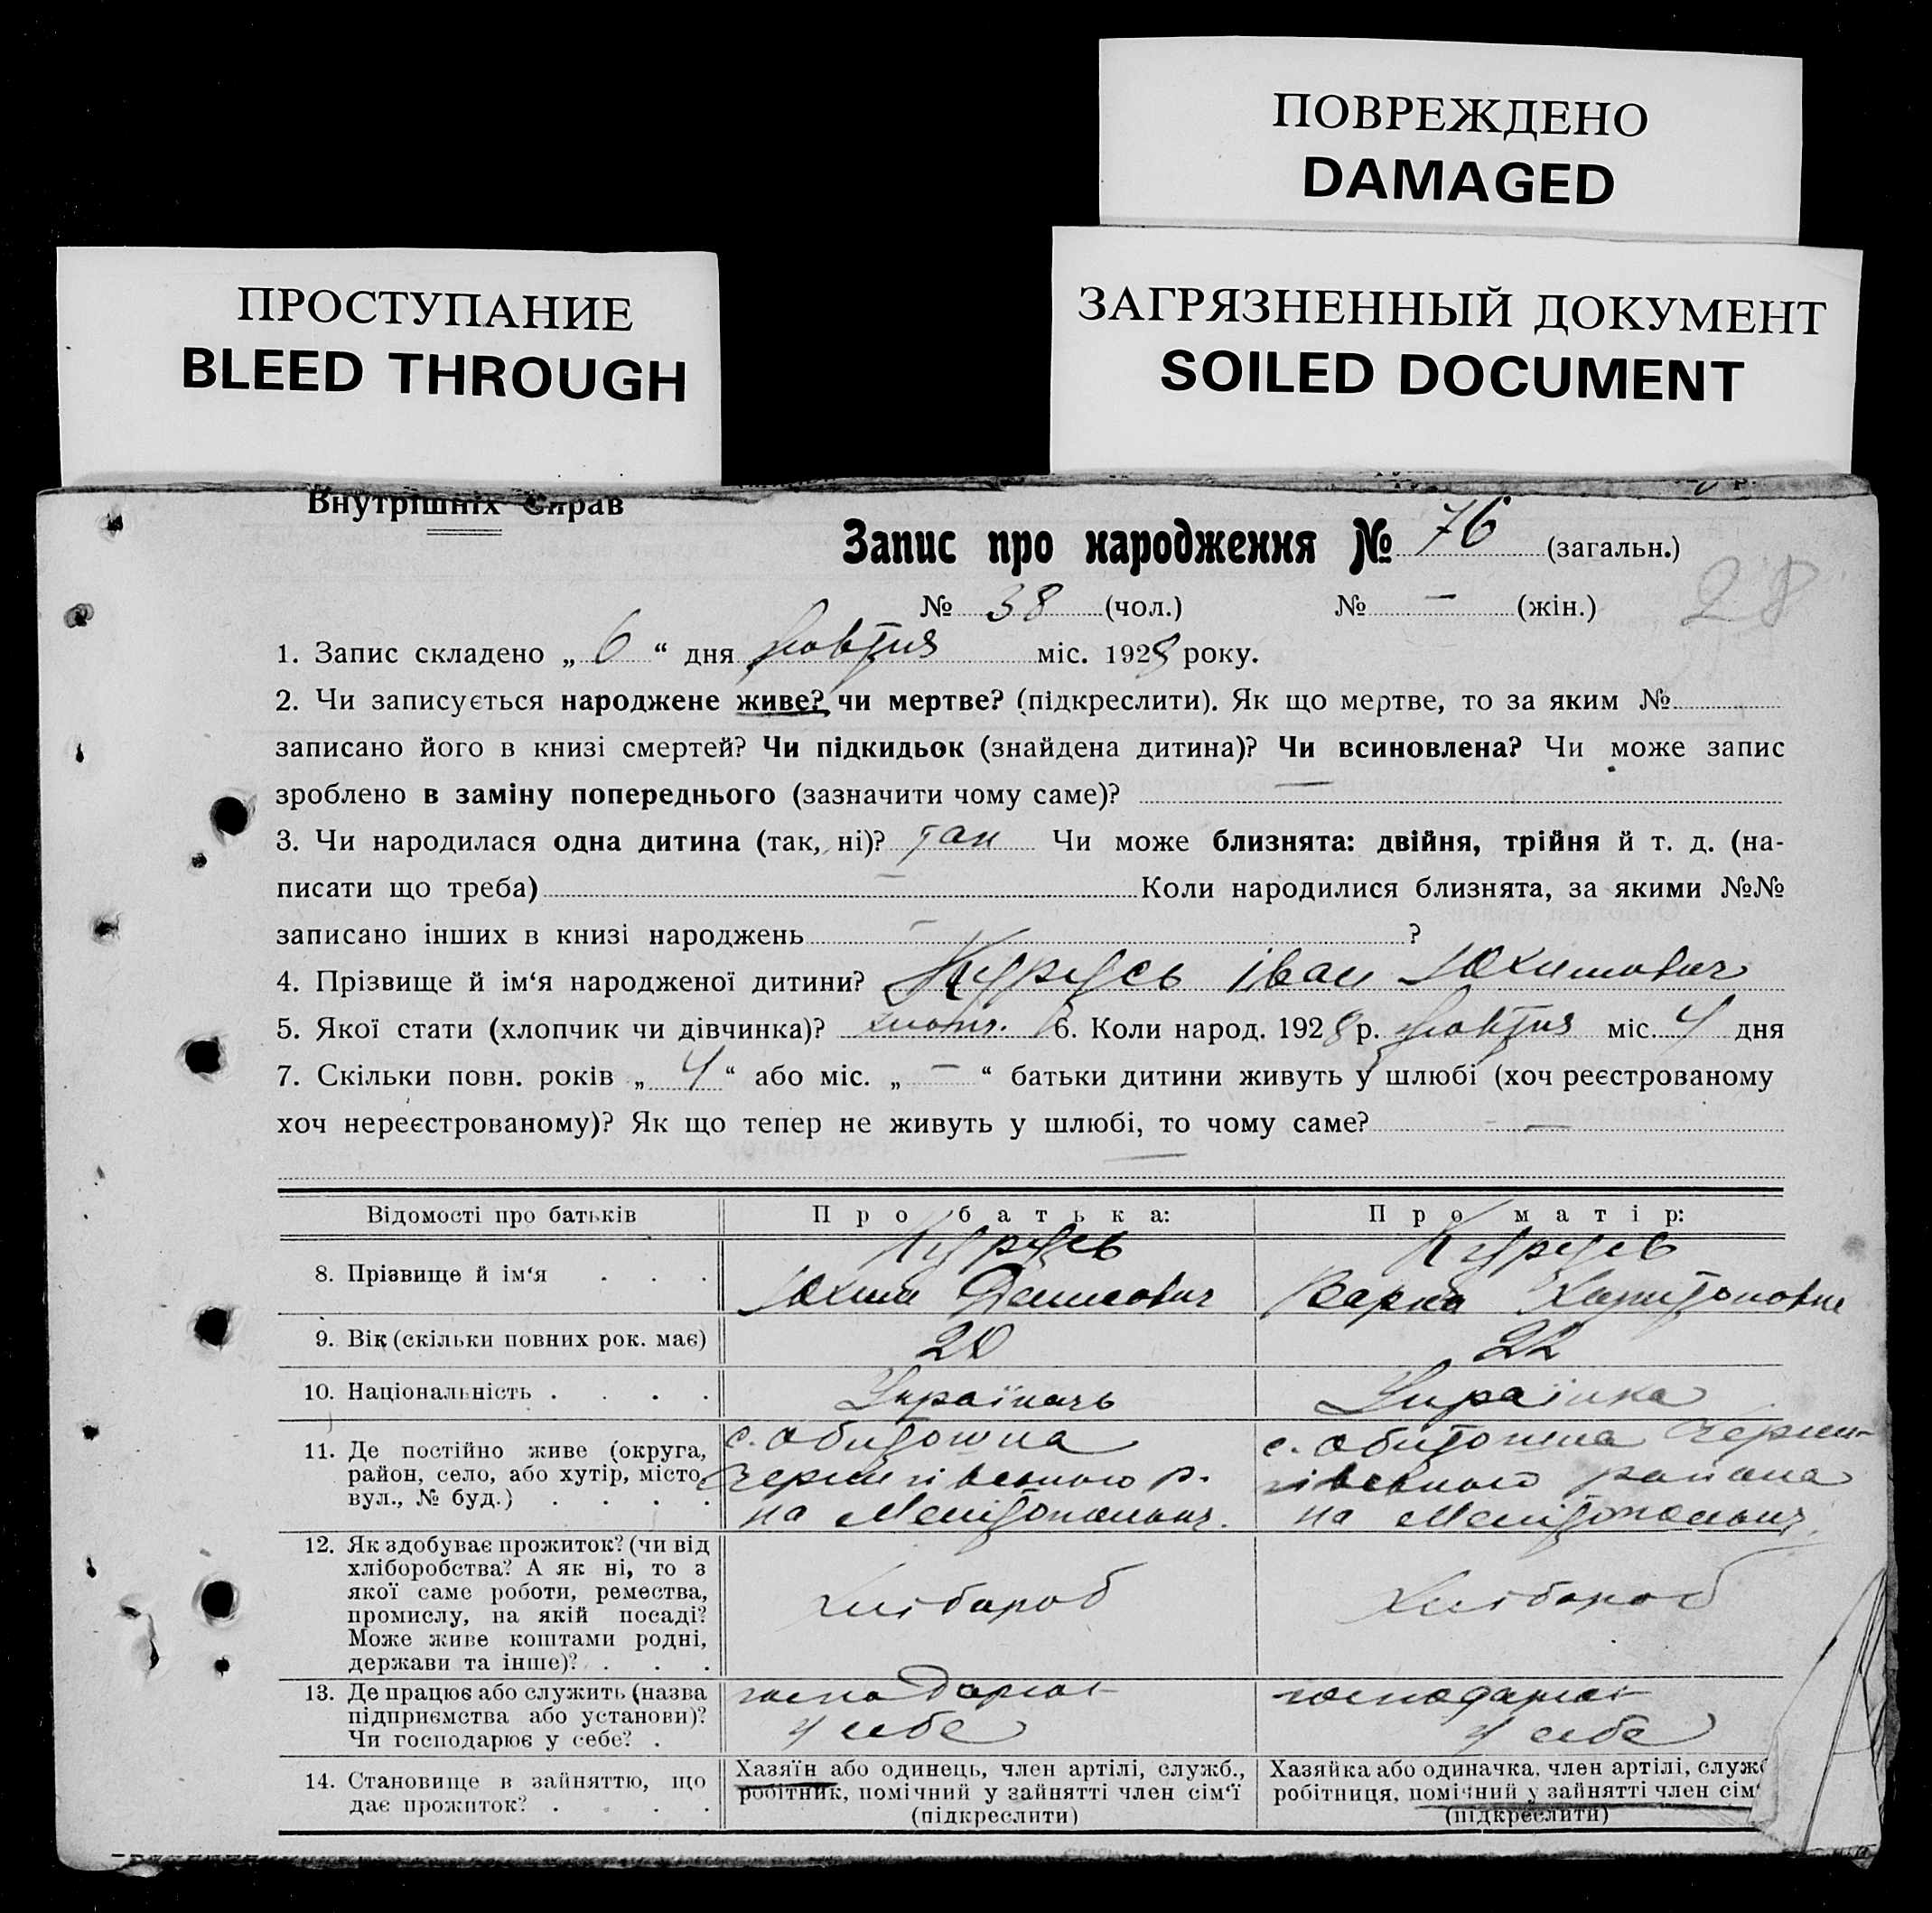 ПОВРЕЖДЕНО
DAMAGED
ПРОСТУПАНИЕ
BLEED THROUGH
ЗАГРЯЗНЕННЫЙ ДОКУМЕНТ
SOILED DOCUMENT
Внутрішніх Справ
Запис про народження № 76 (загальн.)
№ 38 (чол.) № — (жін.)
28
1. Запис складено „ 6 “ дня жовтня міс. 1928 року.
2. Чи записується народжене живе? чи мертве? (підкреслити). Як що мертве, то за яким №
записано його в книзі смертей? Чи підкидьок (знайдена дитина)? Чи всиновлена? Чи може запис
зроблено в заміну попереднього (зазначити чому саме)? —
3. Чи народилася одна дитина (так, ні)? так Чи може близнята: двійня, трійня й т. д. (на-
писати що треба) — Коли народилися близнята, за якими №№
записано інших в книзі народжень — ?
4. Прізвище й ім‘я народженої дитини? Курусь Іван Юхимович
5. Якої стати (хлопчик чи дівчинка)? хлопч. 6. Коли народ. 1928 р. жовтня міс. 4 дня
7. Скільки повн. років „ 4 “ або міс. „ — “ батьки дитини живуть у шлюбі (хоч реєстрованому
хоч нереєстрованому)? Як що тепер не живуть у шлюбі, то чому саме? —
Відомості про батьків
Про батька:
Про матір:
8. Прізвище й ім‘я . . .
Курусь
Юхим Денисович
Курусь
Варка Харитоновна
9. Вік (скільки повних рок. має)
20
22
10. Національність . . . .
Українець
Українка
11. Де постійно живе (округа,
район, село, або хутір, місто,
вул., № буд.) . . . .
с. Обиточна
Чернигівського р.
на Мелітопольщ.
с. Обиточна Черни-
гівського района
на Мелітопольщ.
12. Як здобуває прожиток? (чи від
хліборобства? А як ні, то з
якої саме роботи, ремества,
промислу, на якій посаді?
Може живе коштами родні,
держави та інше)? . . .
хлібороб
Хлібороб
13. Де працює або служить (назва
підприємства або установи)?
Чи господарює у себе? .
господарює
у себе
господарює
у себе
14. Становище в зайняттю, що
дає прожиток? . . . .
Хазяїн або одинець, член артілі, служб.,
робітник, помічний у зайнятті член сім‘ї
(підкреслити)
Хазяйка або одиначка, член артілі, служ
робітниця, помічний у зайнятті член сім‘
(підкреслити)